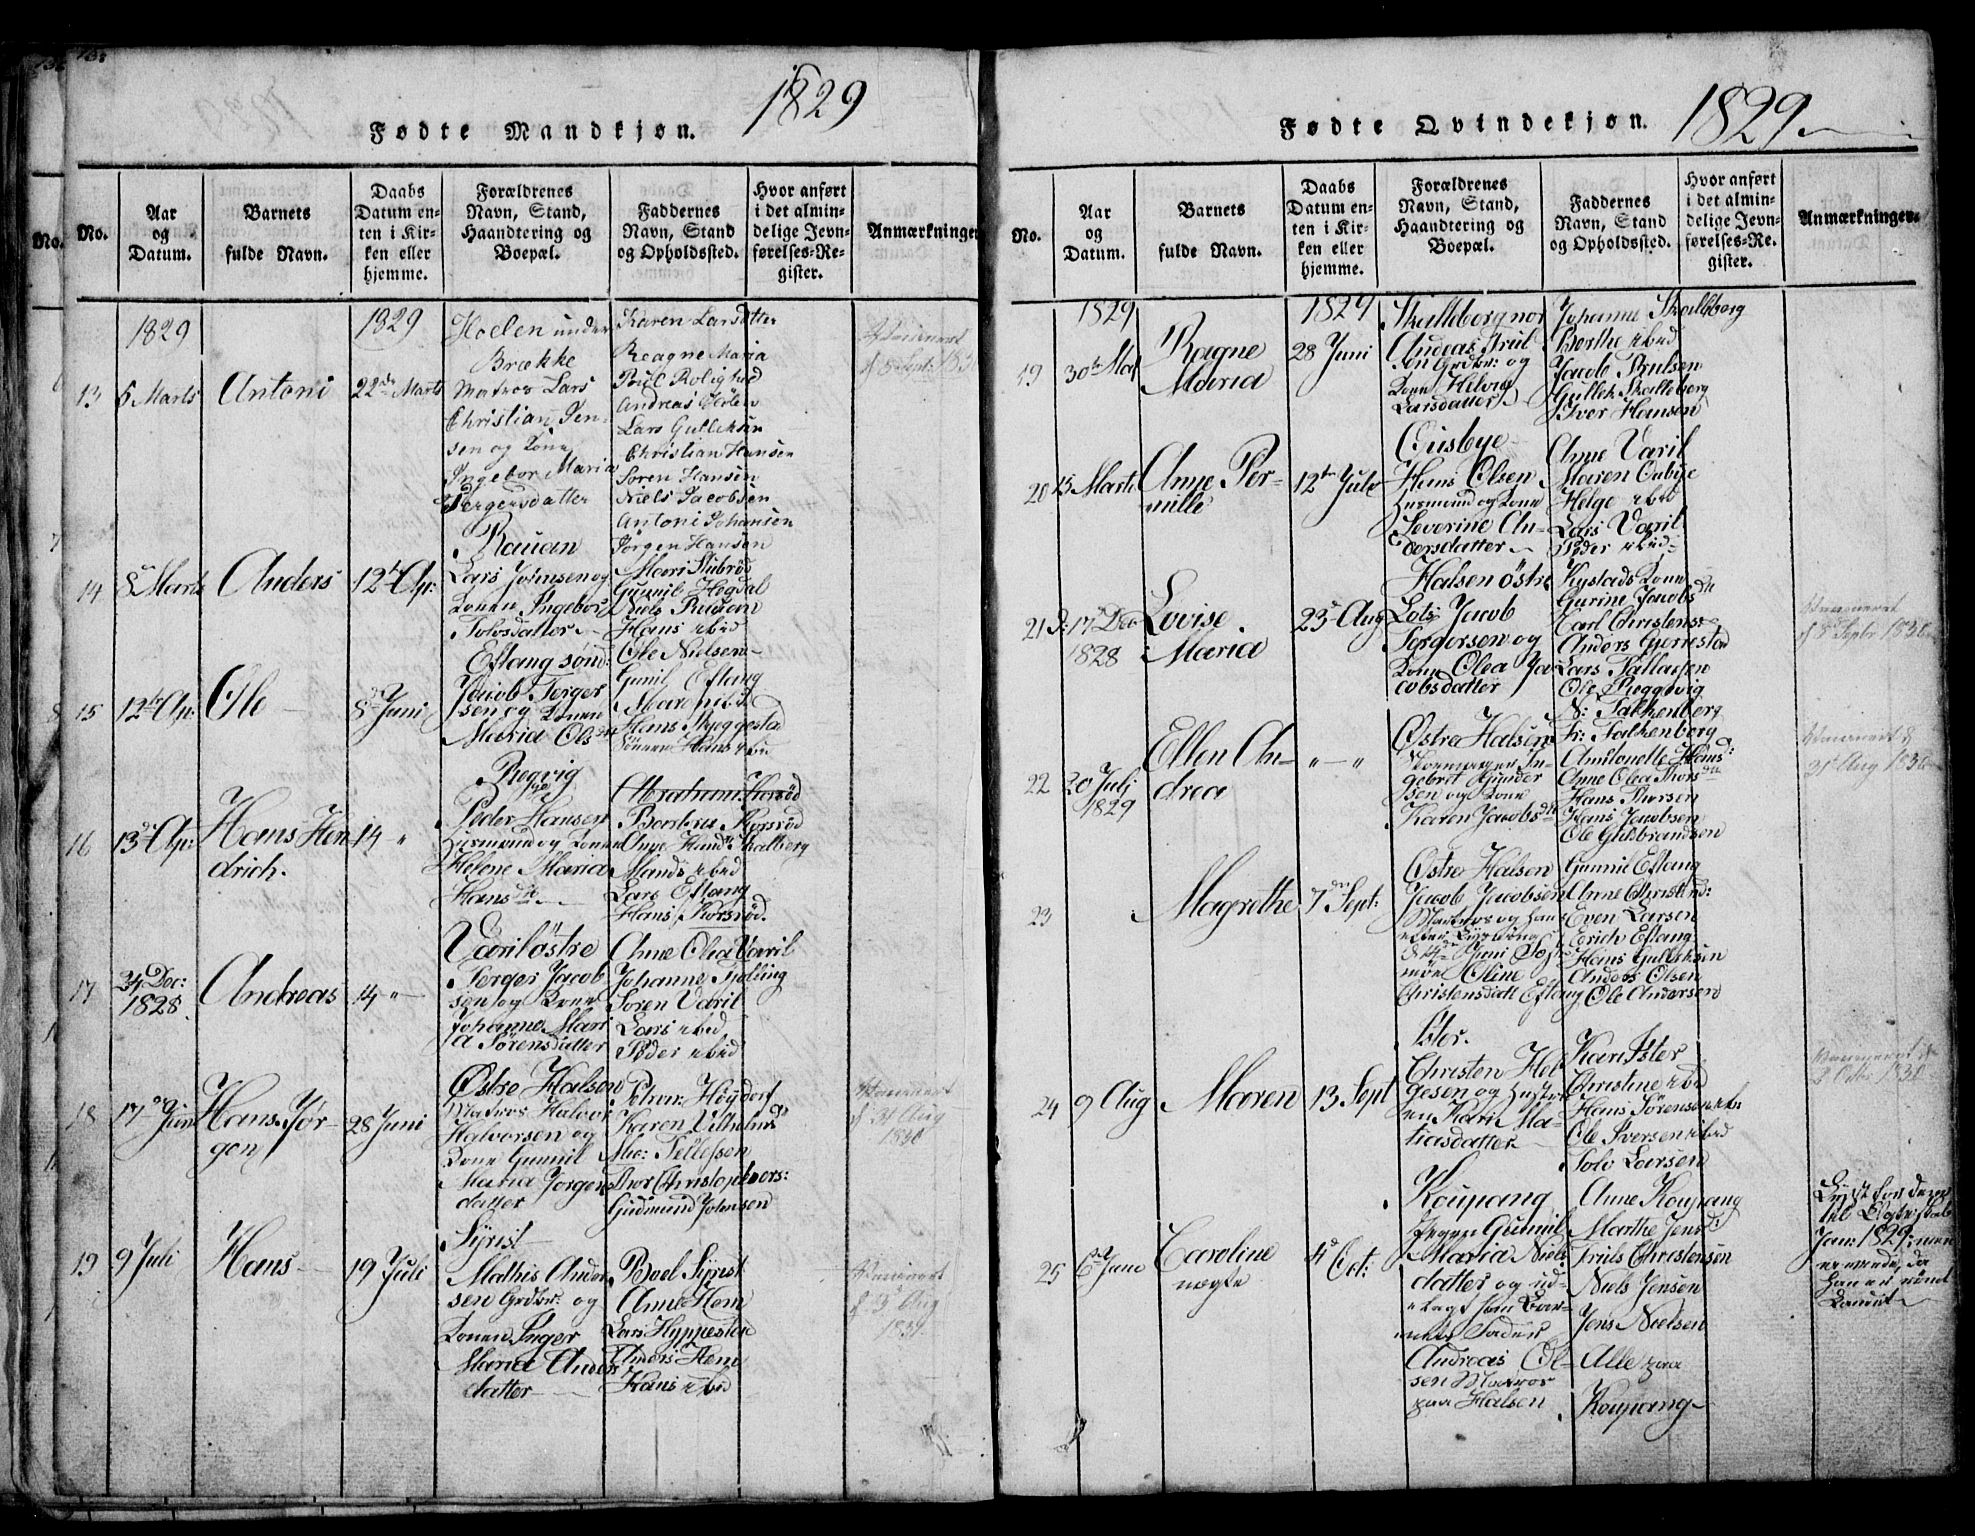 1829
Fødte Mandkjøn.
No.
No.
Aar
og
Datum.
Barnets
fulde Navn.
Daabs
Datum en-
ten i Kir-
ken eller
hjemme.
Forældrenes
Navn, Stand,
Haandtering og
Boepæl.
Faddernes
Navn, Stand
og Opholdssted.
Hvor anført
i det almin-
delige Jevn-
førelses-Re-
gister.
Anmærkninger
1829
13
6 Marts
Antoni
1829
22de Marts
Hoelen under
Brække
Matros Lars
Christian Jen-
sen og Kone
Ingebor Maria
Tergersdatter
Karen Larsdatter
Reagne Maria
Poul Rolighed
Andreas Holen
Lars Gulleksen
Christian Hansen
Søren Hansen
Niels Jacobsen
Antoni Johansen
Jørgen Hansen
14
8 Marts
Anders
12te Apr:
Rauan
Lars Johnsen og
Konen Ingebor
Tolosdatter
Mari Stubrød
Gunnil Hogdal
Niels Rauan
Hans ibid
Ole Nielsen
15
12te Ap:
Ole
8de Juni
Eftang sønd:
Jacob Terger
sen og Konen
Maria Ols dtr
Gunil Eftang
Maren ibid
Hans Skjeggestad
16
13de Ap:
Hans Hen
drich.
14 "
Regvig
Peder Hansen
Huusmand og Konen
Helene Maria
Hans dtr
Abraham Korsrød
Anne Hansdtr Skalberg
Mands ibid
Lars Eftang
Hans Korsrød
17
24 Dec:
1828
Andreas
14 "
Varil østre
Terger Jacob
sen og Kone
Johanne Mari
a Sørensdatter
Anne Olea Varil
Johanne Tjølling
Søren Varil
Lars ibid
Peder ibid
18
17de Jun
Hans Jør-
gen
28 Juni
Østre Halsen
Matros Halvor
Halvorsen og
Kone Gunnil
Maria Jørgens
datter
Karen Vilhelms dtr
Tellefsen
Thor Christophers:
Gudmund Johnsen
19
9 Juli
Hans
19 Juli
Syrist
Mathis Ander
sen Grdbr: og
Konen Inger
Maria Anders
datter
Boel Syrist
Anne Hem
Lars Hyppesten
Anders Hem
Hans ibid
Fødte Qvindekjøn.
1829
No.
Aar
og
Datum.
Barnets
fulde Navn.
Daabs
Datum en-
ten i Kir-
ken eller
hjemme.
Forældrenes
Navn, Stand,
Haandtering og
Boepæl.
Faddernes
Navn, Stand
og Opholdssted.
Hvor anført
i det almin-
delige Jevn-
førelses-Re-
gister.
Anmærkninger.
1829
19
30te Mai
Ragne
Maria
1829
28 Juni
Skalleberg nor
Andeas Trul
sen Grdbr: og
Kone Helvig
Larsdatter
Johanne Skalleberg
Berthe ibid
Jacob Trulsen
Gullek Skalleberg
Iver Hansen
20
15 Marts
Anne Per-
nille
12te Julv
Ousbye
Hans Olsen
Huusmand og Kone
Severine An-
dersdatter
Anne Varil
Maren Ousbye
Helge ibid
Lars Varil
Peder ibid
21
17de Dec
1828
Lovise
Maria
23de Aug
Halsen østre
Lots Jacob
Torgersen og
Kone Olea Ja
cobsdatter
Gurine Jacobs dtr
Carl Christense
Anders Gjerrestad
Lars Pallassen
Ole Reggevig
N: Falkenberg
22
20 Julj
1829
Ellen An-
drea
" — "
Østre Halsen
Skoemager In-
gebret Gunder
sen og Kone
Karen Jacobs dtr
Fr: Falkenberg
Antonette Hans d:
Anne Olea Thors dtr
Hans Thorsen
Hans Jacobsen
Ole Guldbrandsen
23
Magrethe
7de Sept:
Østre Halsen
Jacob Jacobsen
Matros og Hans
Oline
Christensdatt Eftang
Gunnil Eftang
Anne Christend:
Even Larsen
Erich Eftang
Hans Gulleksen
Anders Olsen
Ole Andersen
24
9 Aug
Maren
13 Sept
Ister.
Christen Hel
gesen og Hustru
en Kari Ma-
tiasdatter
Kari Ister
Christine ibid
Hans Sørensen ibi
Ole Iversen ibid
Solv Larsen
25
6te June
Caroline
uægte
4de Oct:
Koupang
Pigen Gunnil
Maria Niels
datter og ud-
lagt som Bar-
nets Fader
Andreas Ol-
sen Matros
paa Halsen
Anne Koupang
Marthe Jens d:
Truls Christensen
Niels Jensen
Jens Nielsen
Alle paa
Koupang